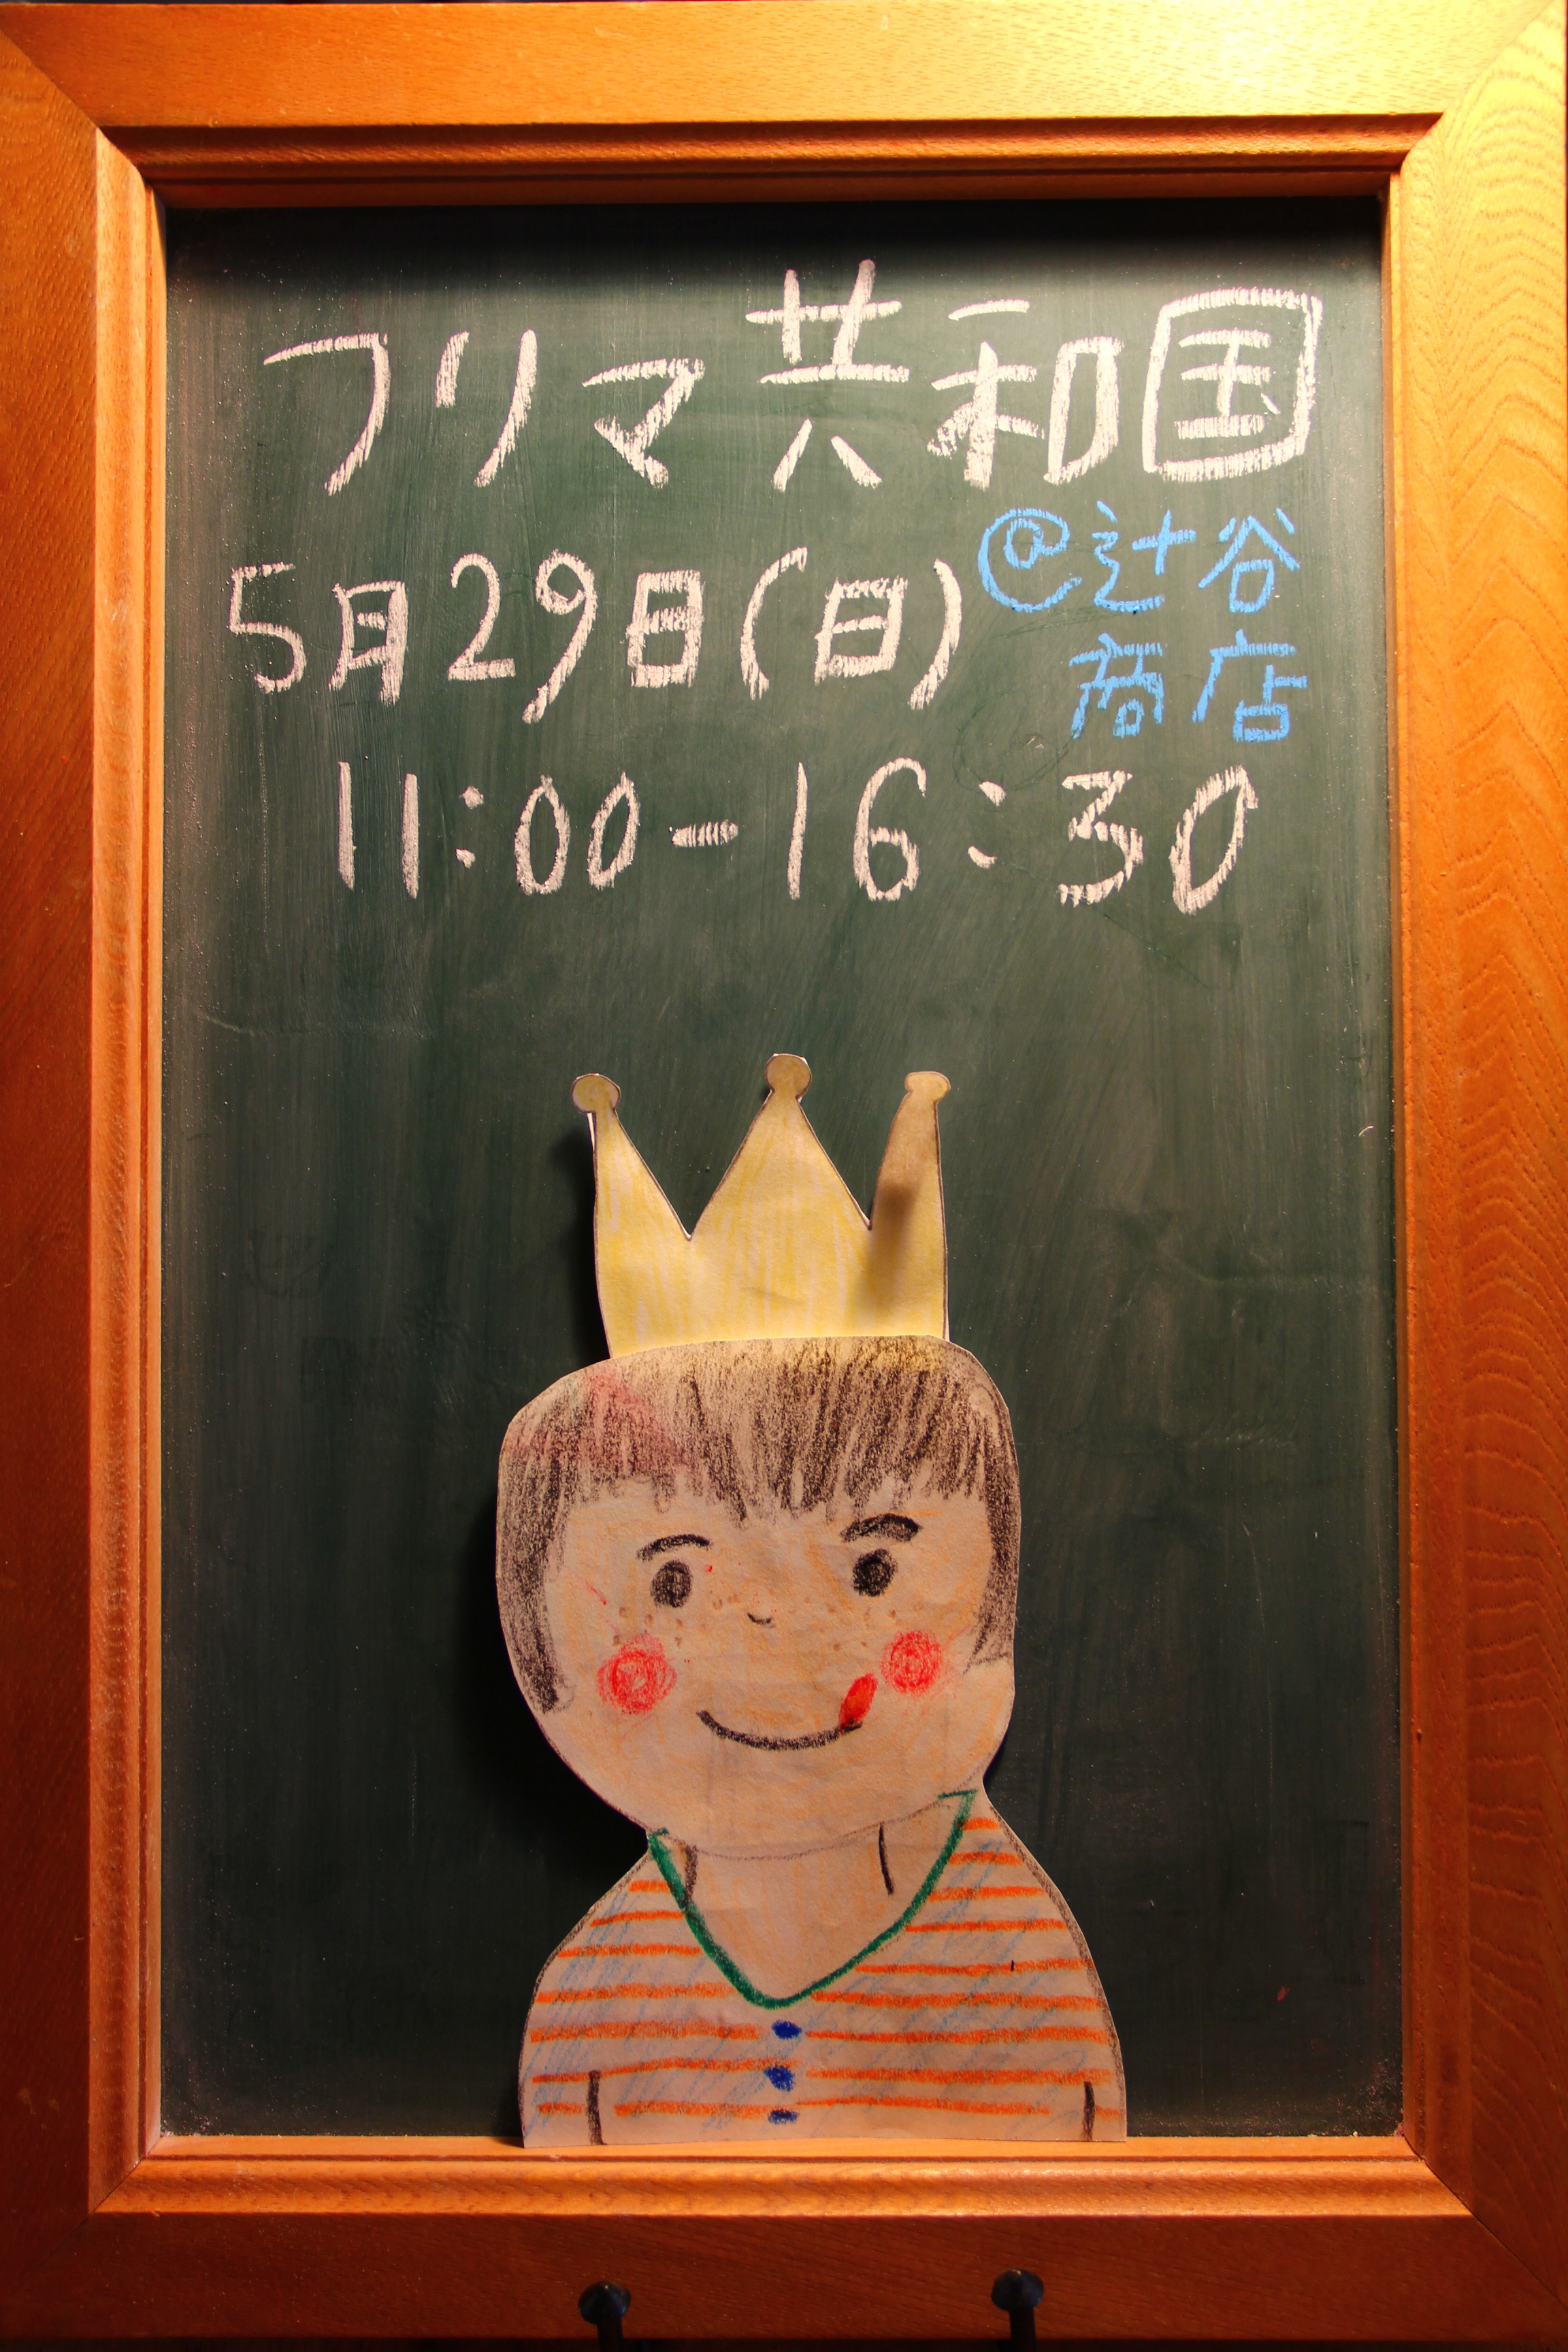 フリマ共和国
5月29日(日)
@辻谷
商店
11:00-16:30